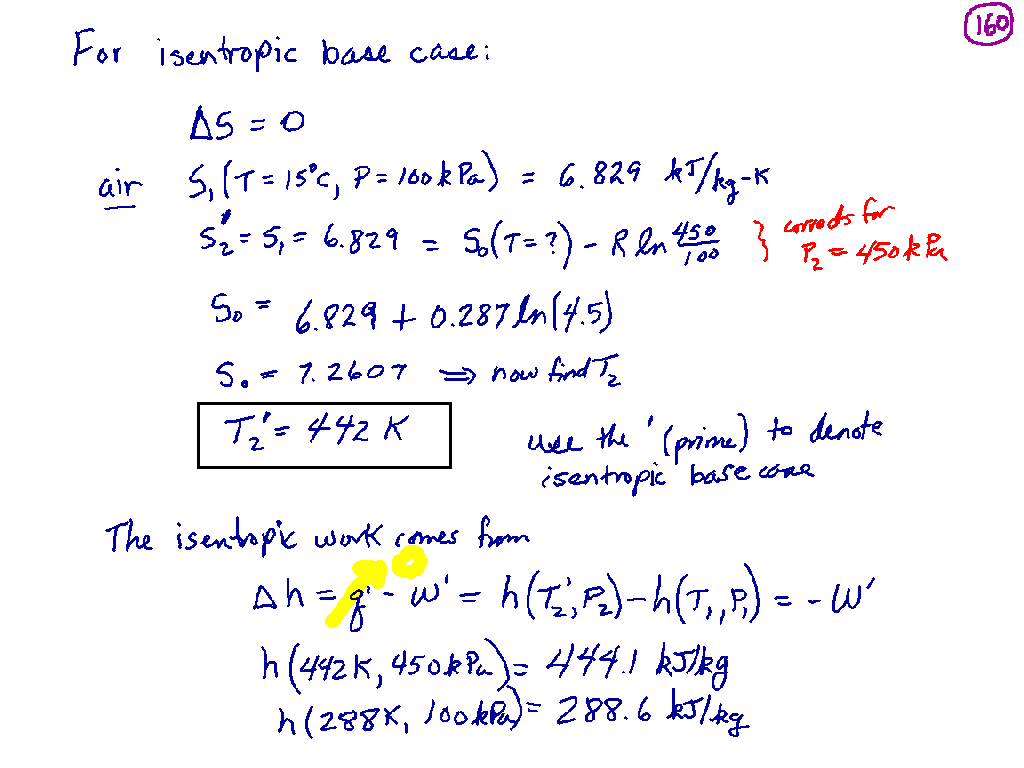 160
For isentropic base case:
ΔS = 0
air S₁(T = 15°C, P = 100 kPa) = 6.829 kJ/kg-K
S₂' = S₁ = 6.829 = S₀(T = ?) - R ln 450/100 } corrects for P₂ = 450 kPa
S₀ = 6.829 + 0.287 ln(4.5)
S₀ = 7.2607 ⇒ now find T₂
T₂' = 442 K
use the ' (prime) to denote
isentropic base case
The isentropic work comes from
Δh = q' - w' = h(T₂', P₂) - h(T₁, P₁) = - w'
h(442K, 450kPa) = 444.1 kJ/kg
h(288K, 100kPa) = 288.6 kJ/kg